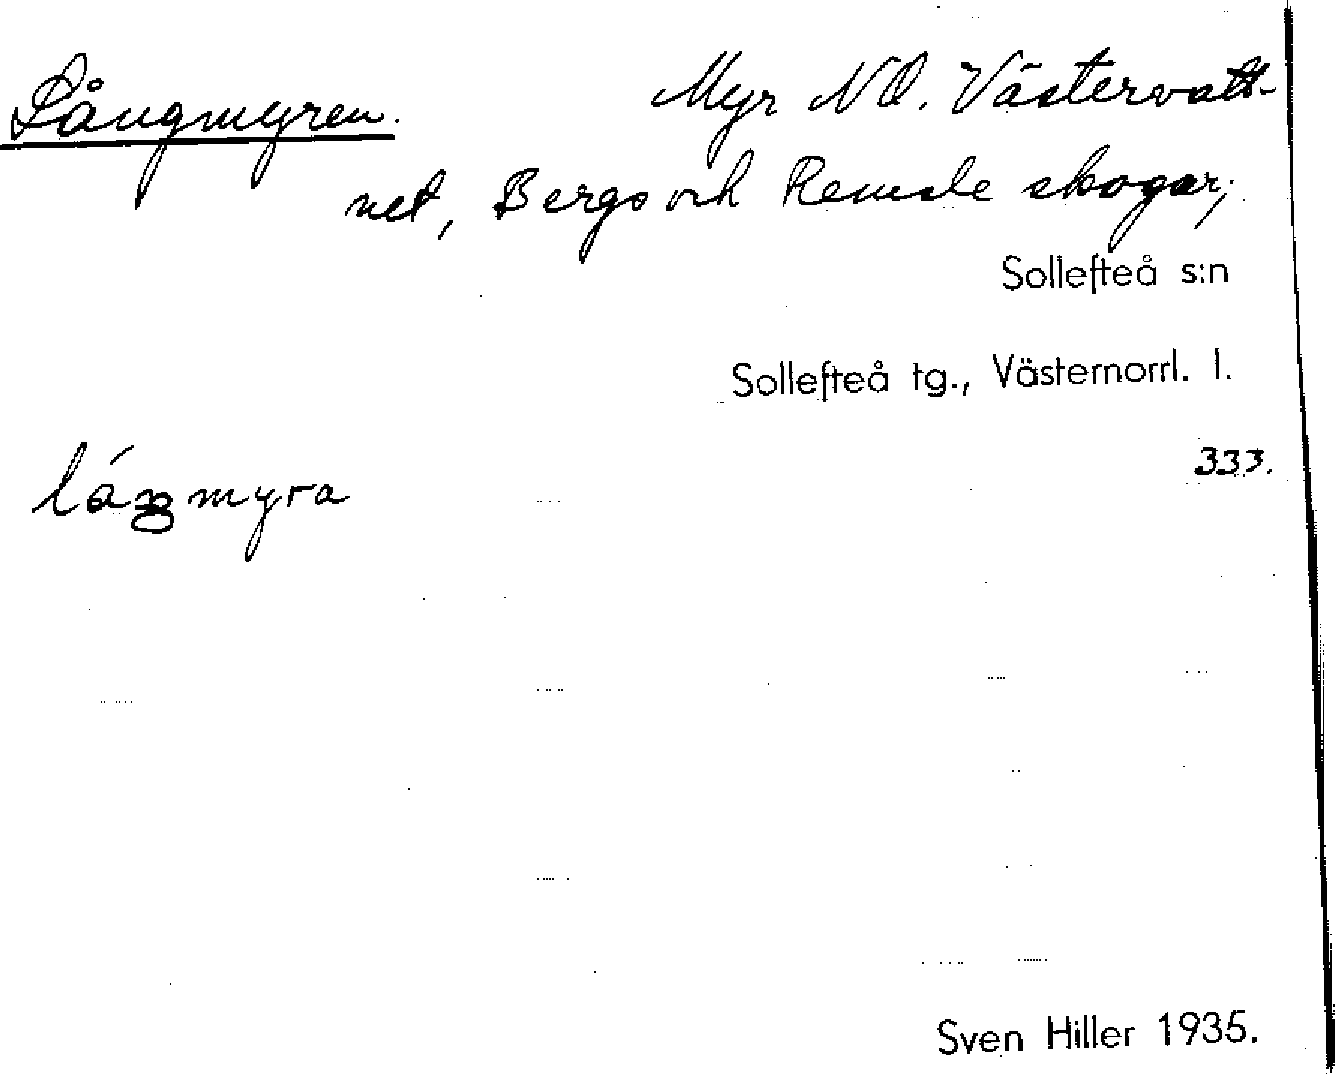 Långmyren. Myr NO. Västervatt-
net, Bergs och Remsle skogar;
Sollefteå s:n
Sollefteå tg., Västernorrl. l.
333.
myra
Sven Hiller 1935.